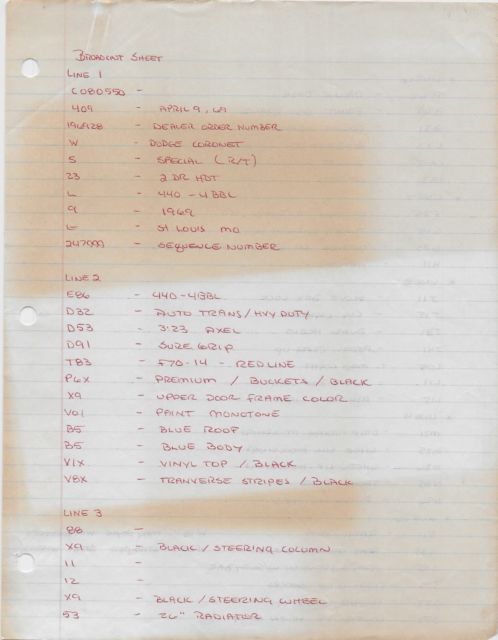 BROADCAST SHEET
LINE 1
C080550 -
409 - APRIL 9, 69
196928 - DEALER ORDER NUMBER
W - DODGE CORONET
S - SPECIAL (R/T)
23 - 2 DR HDT
L - 440 - 4BBL
9 - 1969
G - ST LOUIS MO
247999 - SEQUENCE NUMBER
LINE 2
E86 - 440-4BBL
D32 - AUTO TRANS/HVY DUTY
D53 - 3:23 AXEL
D91 - SURE GRIP
T83 - F70-14 - REDLINE
P6X - PREMIUM / BUCKETS / BLACK
X9 - UPPER DOOR FRAME COLOR
V01 - PAINT MONOTONE
B5 - BLUE ROOF
B5 - BLUE BODY
V1X - VINYL TOP / BLACK
V8X - TRANVERSE STRIPES / BLACK
LINE 3
88 -
X9 - BLACK / STEERING COLUMN
11 -
12 -
X9 - BLACK / STEERING WHEEL
53 - 26" RADIATOR